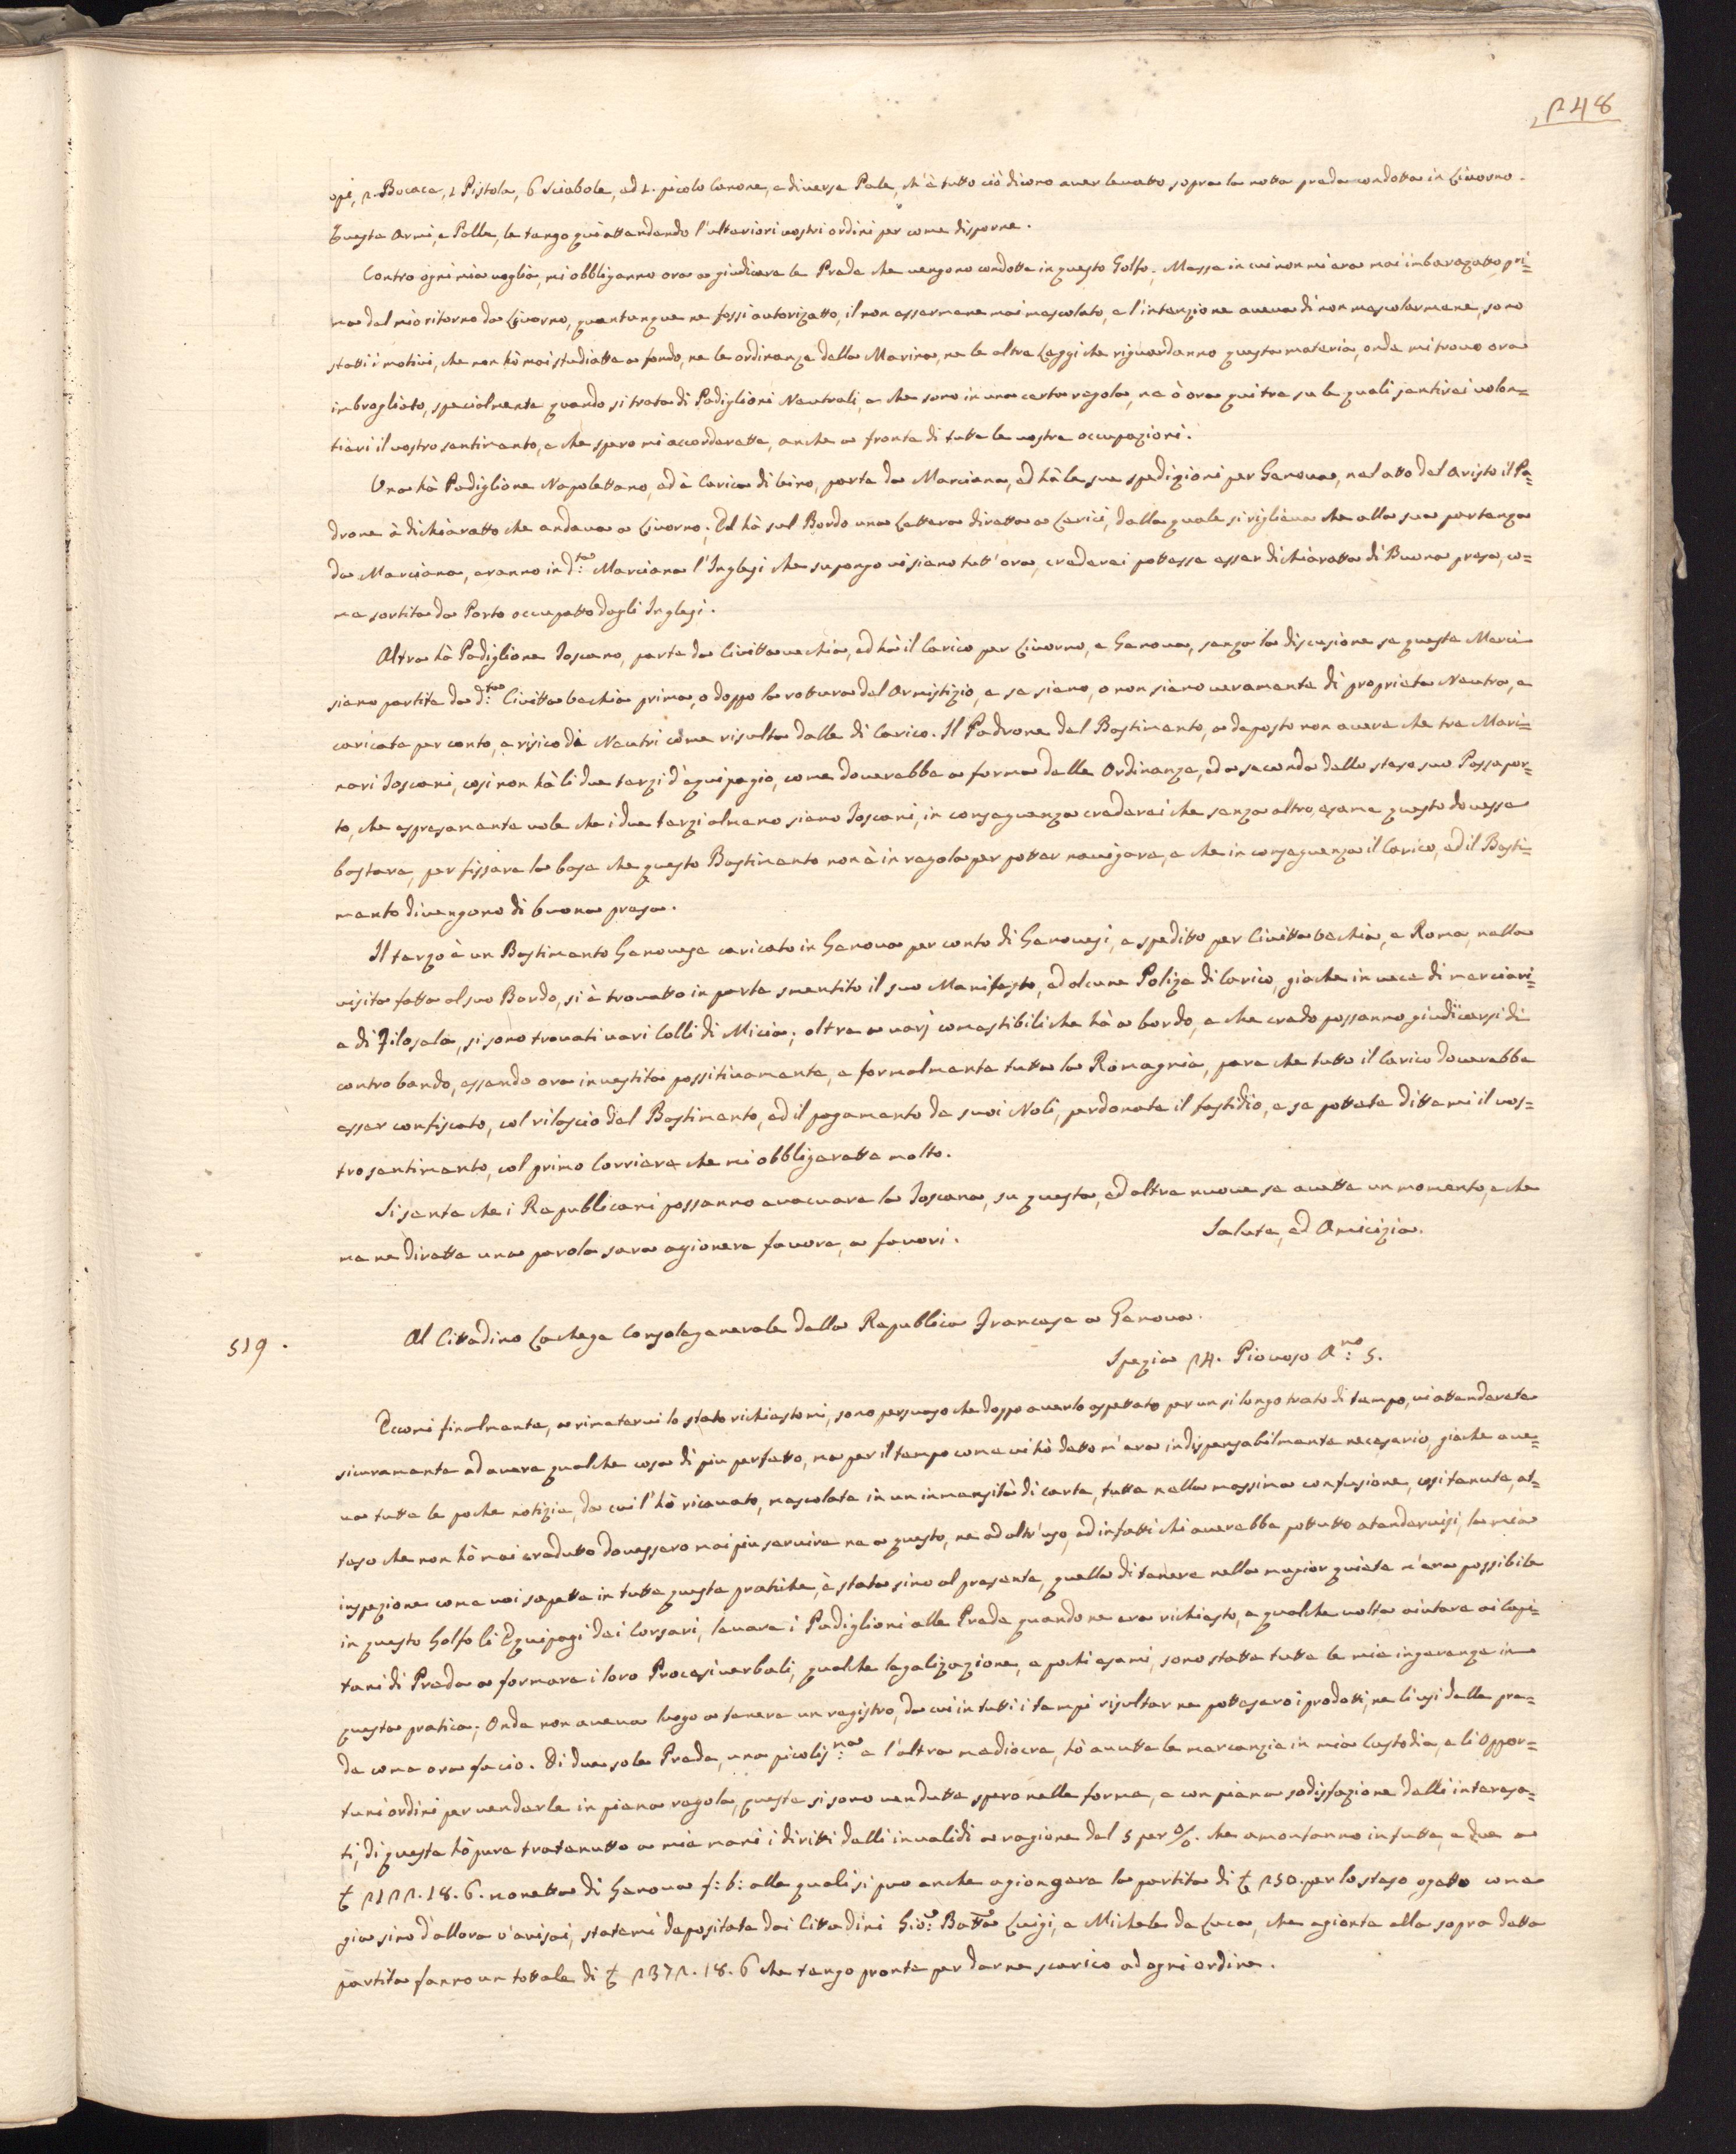 248
opi, 2. Bocace, 1 Pistola, 6 Sciabole, ed 1. picolo Canone, e diverse Pale, ch'è tutto ciò dicono aver levatto sopra la notta preda condotta in Livorno.
Queste Armi, e Palle, le tengo quì attendendo l'ulteriori vostri ordini per come disporne.
Contro ogni mia voglia, mi obbliganno ora a giudicare le Prede che vengono condotte in questo Golfo. Messe in cui non mi ero mai imbarazatto pri=
ma del mio ritorno da Livorno, quantunque ne fossi autorizatto, il non essermene mai mescolato, e l'intenzione aveva di non mescolarmene, sono
statti i motivi, che non hò mai studiatte a fondo, ne le ordinanze della Marina, ne le altre Leggi che riguardanno questa materia, onde mi trovo ora
imbrogliato, specialmente quando si trata di Padiglioni Neutrali, e che sono in una certa regola, ne ò ora qui tre su le quali sentirei volon=
tieri il vostro sentimento, e che spero mi accorderette, anche a fronte di tutte le vostre occupazioni.
Una hà Padiglione Napolettano, ed è Carica di Vino, parte da Marciana, ed hà le sue spedizioni per Genova, nel atto del Aristo il Pa=
drone à dichiaratto che andava a Livorno; Ed hà sul Bordo una Lettera diretta a Lerici, dalla quale si riglieva che alla sua partenza
da Marciana, eranno in d:ta Marciana l'Inglesi che supongo vi siano tutt'ora, crederei pottesse esser dichiaratta di Buona presa, co=
me sortita da Porto occupatto dagli Inglesi.
Altra hà Padiglione Toscano, parte da Civitta vechia, ed hà il Carico per Livorno, e Genova, senza la discusione se queste Merci
siano partite da d:ta Civitta vechia prima, o doppo la rottura del Armistizio, e se siano, o non siano veramente di proprieta Neutra, e
caricate per conto, e risico di Neutri come risulta dalle di Carico. Il Padrone del Bastimento, a deposto non avere che tre Mari=
nari Toscani, cosi non hà li due terzi d'equipagio, come doverebbe a forma delle Ordinanze, ed a seconda dello steso suo Passapor=
to, che espresamente vole che i due terzi almeno siano Toscani, in conseguenza crederei che senza altro esame questo dovesse
bastare, per fissare la base che questo Bastimento non è in regola per potter navigare, e che in conseguenza il Carico, ed il Basti=
mento divengono di buona presa.
Il terzo è un Bastimento Genovese caricato in Genova per conto di Genovesi, e speditto per Civitta vechia, e Roma, nella
visita fatta al suo Bordo, si è trovatto in parte smentito il suo Manifesto, ed alcune Polize di Carico, gioche in vece di merciari=
e di Filosela, si sono trovati vari Colli di Micia; oltre a varj comestibili che hà a bordo, e che credo possanno giudicarsi di
contro bando, essendo ora investita possitivamente, e formalmente tutta la Romagnia, pare che tutto il Carico doverebbe
esser confiscato, col rilascio del Bastimento, ed il pagamento de suoi Noli, perdonate il fastidio, e se pottete dittemi il vos=
tro sentimento, col primo Corriere che mi obbligarette molto.
Si sente che i Republicani possanno evacuare la Toscana, su questa, ed altre nuove se avette un momento, e che
me ne dirette una parola sara agionere favore, a favori.
Salute, ed Amicizia.
519.
Al Cittadino Lachege Consolegenerale della Republica Francese a Genova.
Spezia 24. Piovoso A:no 5.
Eccomi finalmente, a rimetervi lo stato richiestomi, sono persuaso che doppo averlo aspettato per un si longo trato di tempo, vi attenderete
sicuramente ad avere qualche cosa di piu perfetto, ma per il tempo come vi hò detto m'era indispensabilmente necesario, gioche ave=
va tutte le poche notizie, da cui l'hò ricavato, mescolate in un inmensità di carte, tutte nella massima confusione, cosi tenute, at=
teso che non hò mai credutto dovessero mai piu servire ne a questo, ne ad altr'uso, ed infatti chi averebbe pottutto atendervisi, la mia
inspezione come voi sapette in tutte queste pratiche, è stata sino al presente, quella di tenere nella magior quiete m'era possibile
in questo Golfo li Equipagi dei Corsari, levare i Padiglioni alle Prede quando ne era richiesto, e qualche volta aiutare ai Capi=
tani di Preda a formare i loro Procesi verbali, qualche legalizazione, e pochi esami, sono statte tutte le mie ingerenze in
questa pratica; Onde non aveva luogo a tenere un registro, da cui in tutti i tempi risultar ne pottesero i prodotti, ne li usi delle pre=
de come ora facio. Di due sole Prede, una picolis:ma e l'altra mediocre, hò avutte le mercanzie in mia Custodia, e li Oppor=
tuni ordini per venderle in piena regola, queste si sono vendutte spero nelle forme, e con piena sodisfazione delli interesa=
ti, di queste hò pure tratenutto a mie mani i diritti delli invalidi a ragione del 5 per %. che amontanno in tutte, e due a
₤ 2122.18.6. monetta di Genova f: b: alle quali si puo anche agiongere la partita di ₤ 250. per lo steso ogetto come
gia sino d'allora v'avisai, statemi depositate dai Cittadini Gio: Batta Luigi, e Michele de Luca, che agiente alla sopra detta
partita fanno un tottale di ₤ 2372.18.6 che tengo pronte per darne scarico ad ogni ordine.